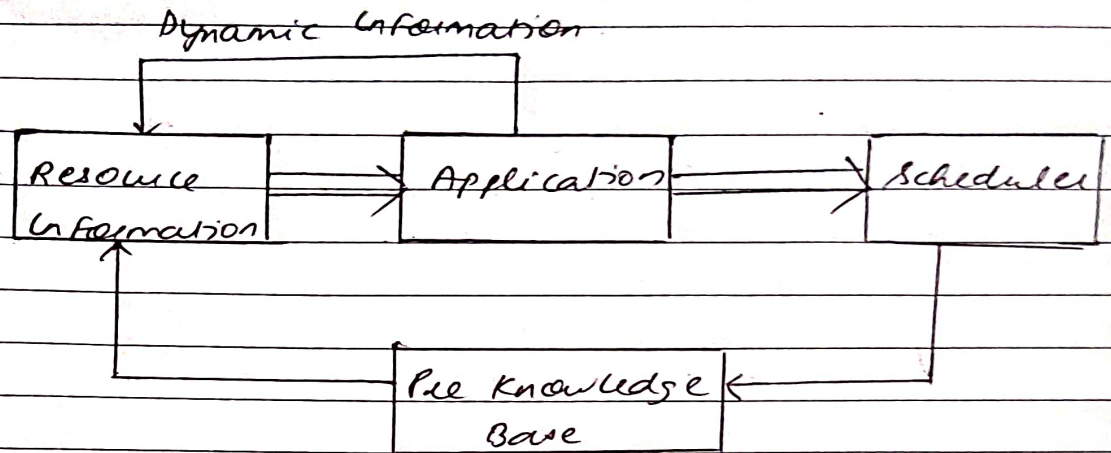 Dynamic Information
Resource
Information
Application
Scheduler
Pre Knowledge
Base